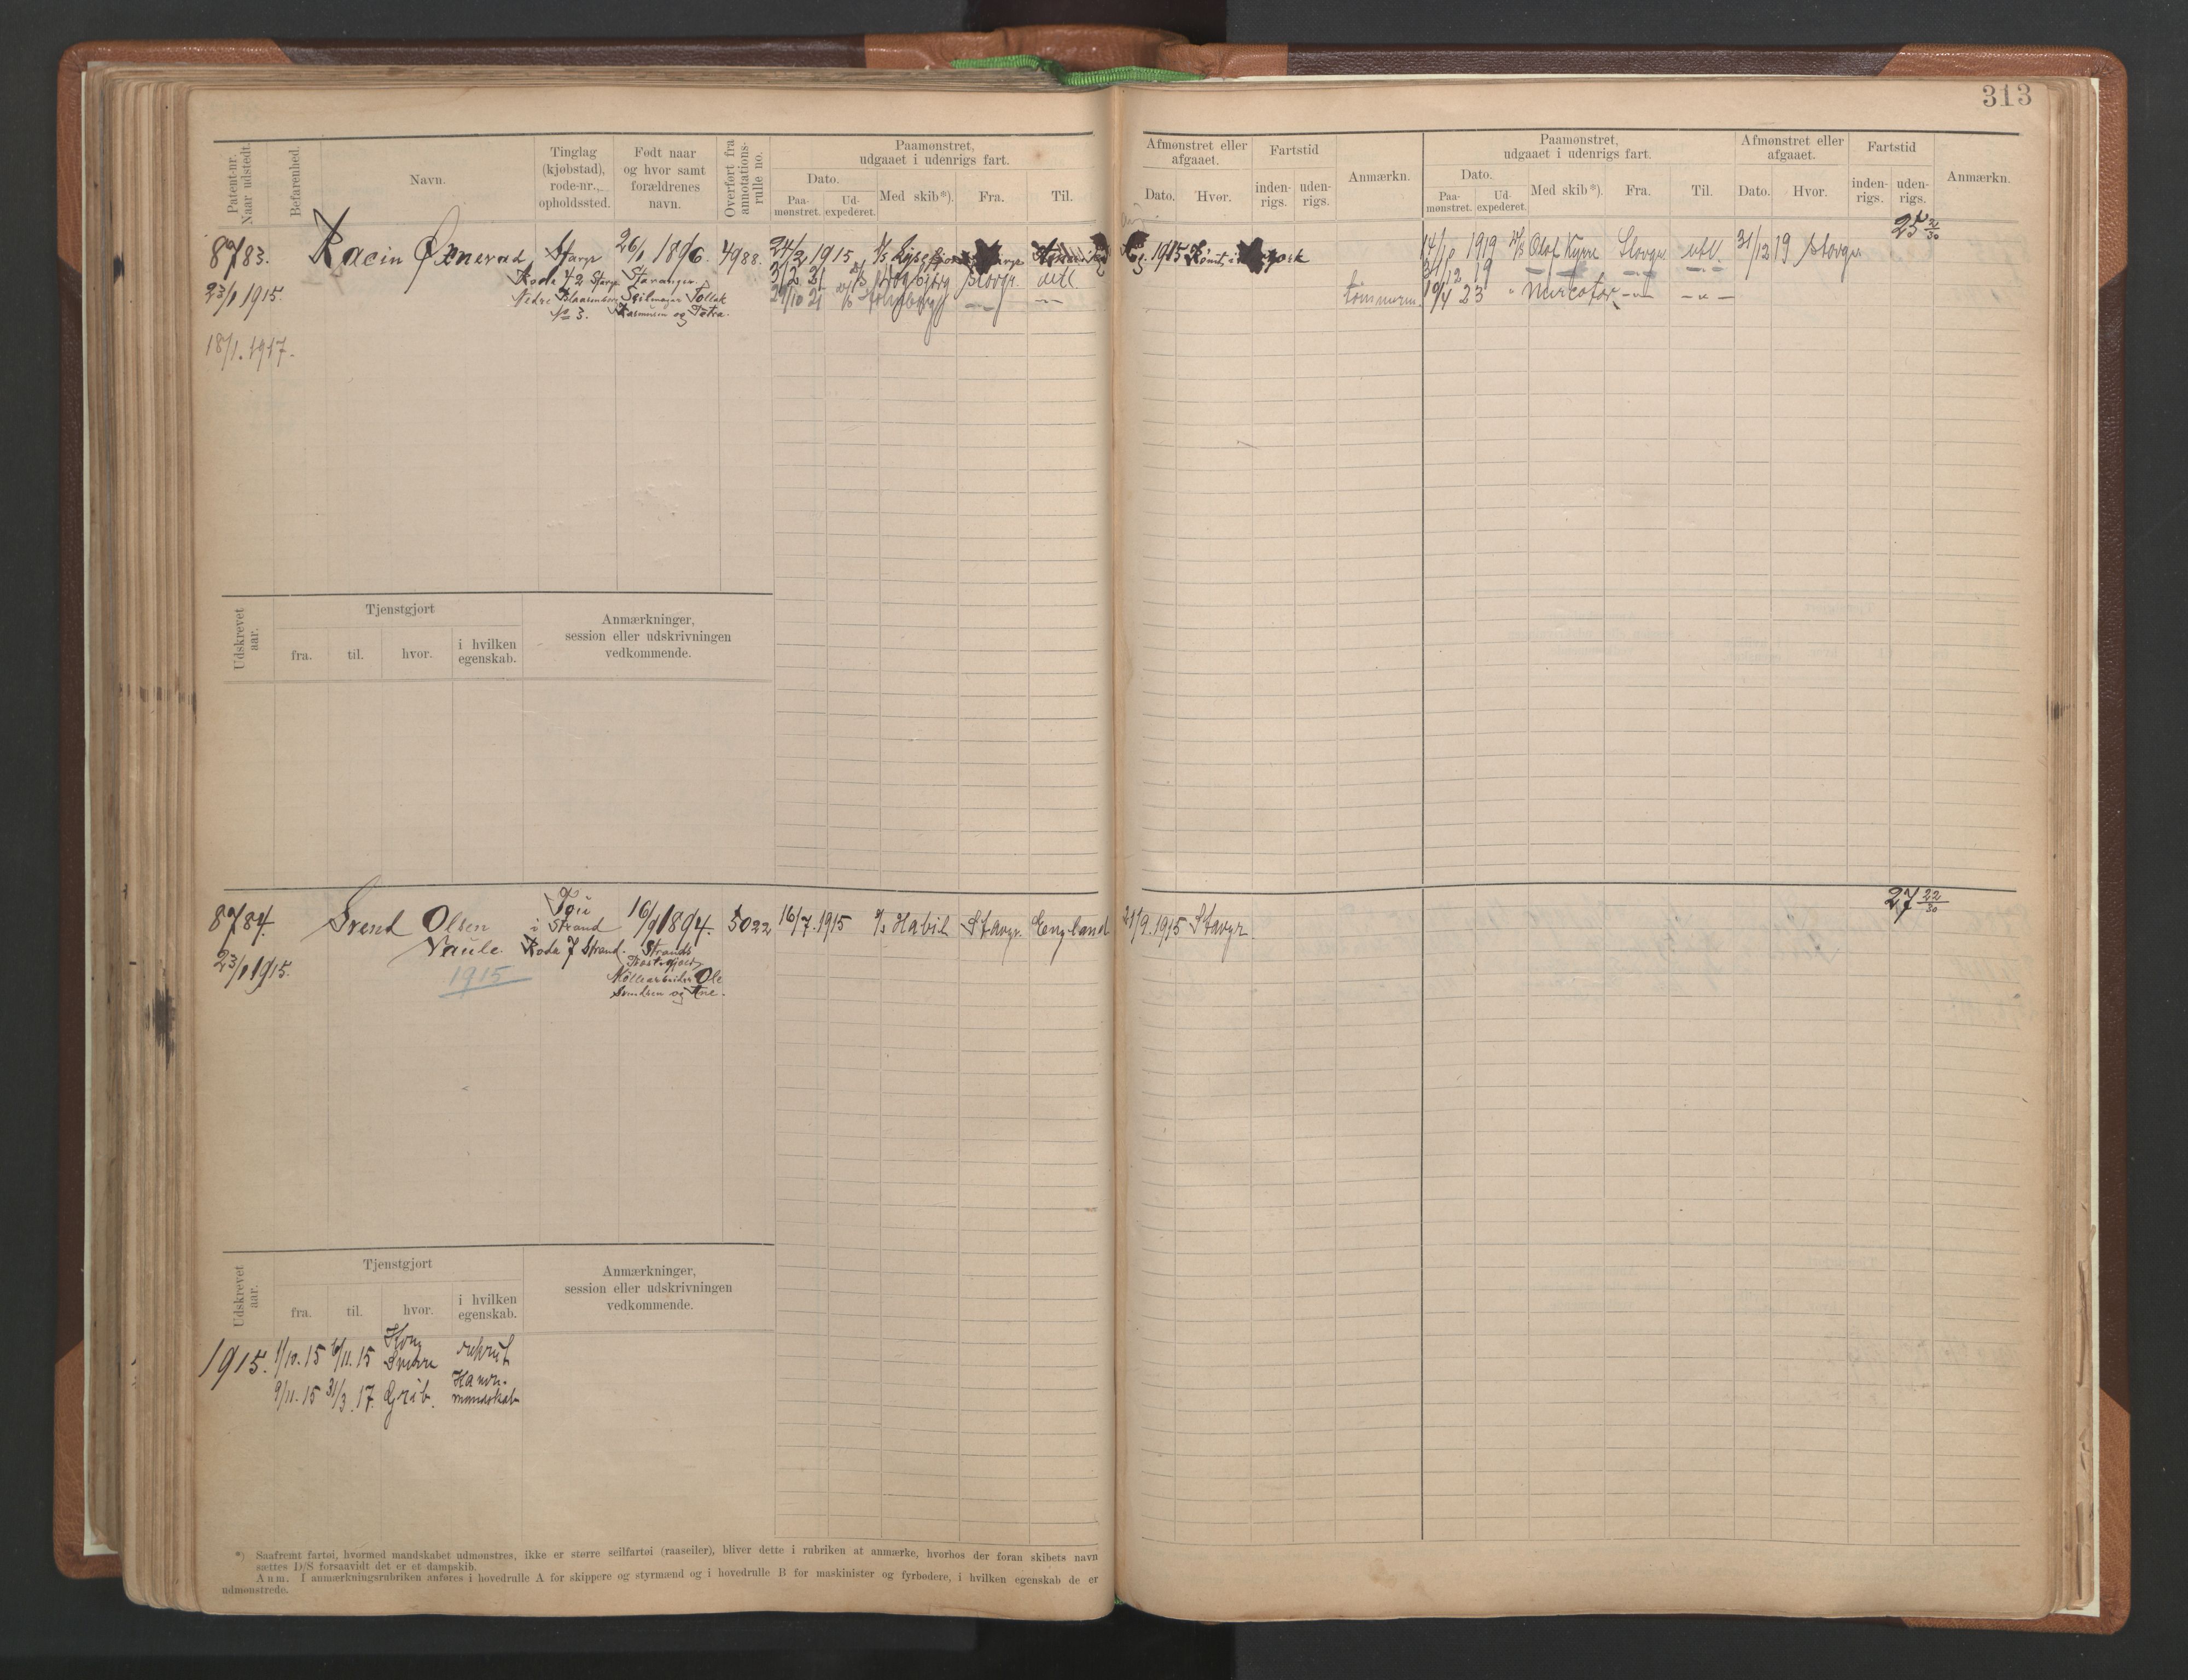 313
Patent-nr. Naar udstedt.
Befarenhed.
Navn.
Tinglag (kjøbstad), rode-nr., opholdssted.
Født naar og hvor samt forældrenes navn.
Overført fra annotations-rulle no.
Paamønstret, udgaaet i udenrigs fart.
Dato.
Paa-mønstret.
Ud-expederet.
Med skib*).
Fra.
Til.
Afmønstret eller afgaaet.
Dato.
Hvor.
Fartstid
inden-rigs.
uden-rigs.
Anmærkn.
Paamønstret, udgaaet i udenrigs fart.
Dato.
Paa-mønstret.
Ud-expederet.
Med skib*).
Fra.
Til.
Afmønstret eller afgaaet.
Dato.
Hvor.
Fartstid
inden-rigs.
uden-rigs.
Anmærkn.
25 2/30
8783. Racin Øxnevad Stavgr 26/1 1896. 4988. 24/2 1915
Rode 42 Stavgr Stavanger
23/1 1915. Nedre Blaasenborg Seilmager Tollak
No 3. Rasmussen og Petra.
18/1. 1917.
3/2 21 Stavgr. utl.
29/10 21
1915 Rømt i
14/10 1919 Olaf Kyrre Stavgr utl. 31/12 19 Stavgr
31/12 19
tømmerm. 19/4 23
Udskrevet aar.
Tjenstgjort
fra.
til.
hvor.
i hvilken egenskab.
Anmærkninger, session eller udskrivningen vedkommende.
27 22/30
8784. Svend Olsen Tou 16/9 1894. 5022 16/7. 1915 Habil Stavgr. England 21/9. 1915 Stavgr.
i Strand
Vaule Rode 7 Strand. Strands
23/1 1915. Prestegjeld
1915 Møllearbeider Ole
Svendsen og Ane.
Udskrevet aar.
Tjenstgjort
fra.
til.
hvor.
i hvilken egenskab.
Anmærkninger, session eller udskrivningen vedkommende.
1915. 1/10. 15 6/11. 15 Kong Sverre rekrut
9/11. 15 31/3. 17. Grib. Havn. mandskab
*) Saafremt fartøi, hvormed mandskabet udmønstres, ikke er større seilfartøi (raaseiler), bliver dette i rubriken at anmærke, hvorhos der foran skibets navn
sættes D/S forsaavidt det er et dampskib.
Anm. I anmærkningsrubriken anføres i hovedrulle A for skippere og styrmænd og i hovedrulle B for maskinister og fyrbødere, i hvilken egenskab de er
udmønstrede.